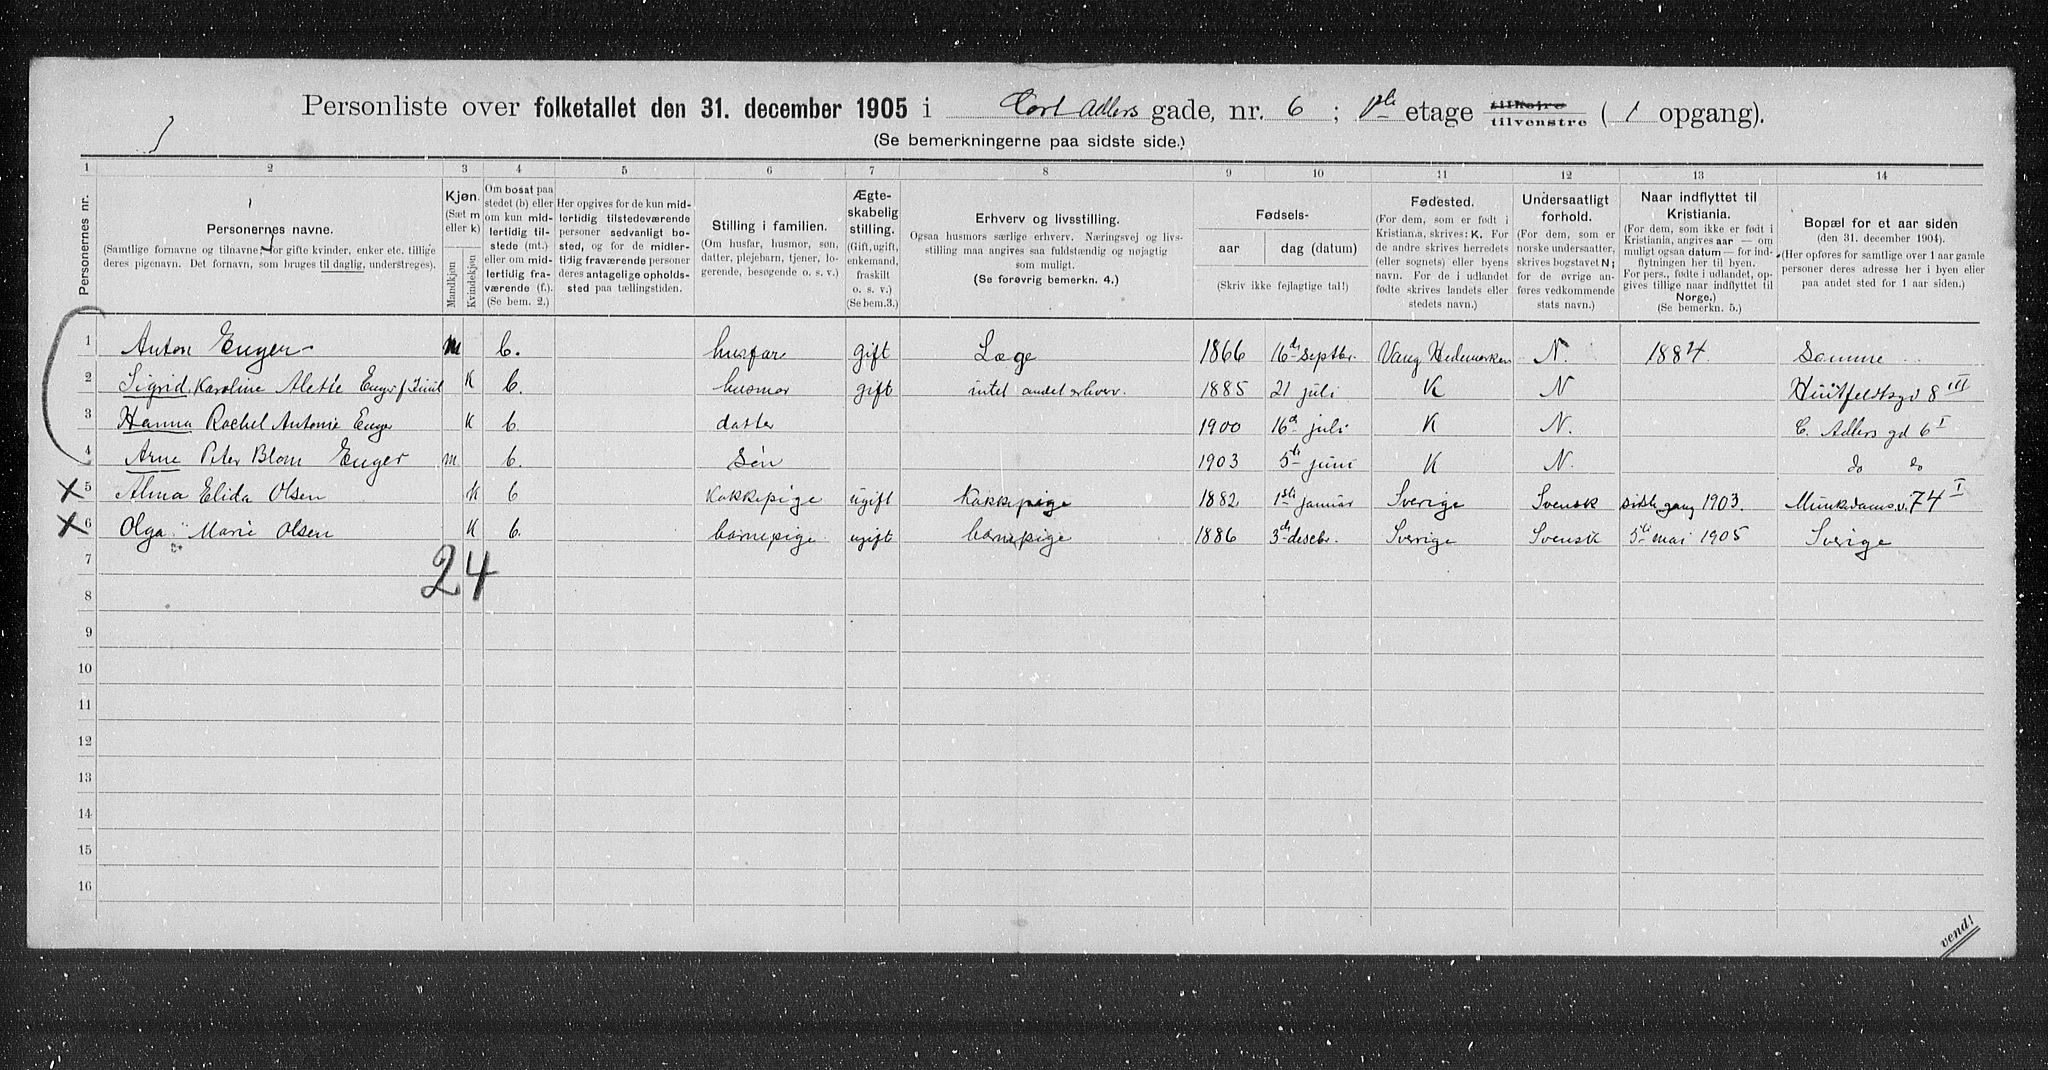 Personliste over folketallet den 31. december 1905 i Cort Adlers gade, nr. 6 ; 1ste etage tilhøjre tilvenstre ( 1 opgang).
(Se bemerkningerne paa sidste side.)
1 2 3 4 5 6 7 8 9 10 11 12 13 14
Personernes nr.
Personernes navne.
(Samtlige fornavne og tilnavne, for gifte kvinder, enker etc. tillige
deres pigenavn. Det fornavn, som bruges til daglig, understreges).
Kjøn.
(Sæt m
eller k)
Mandkjøn
Kvindekjøn
Om bosat paa
stedet (b) eller
om kun mid-
lertidig til-
stede (mt.)
eller om mid-
lertidig fra-
værende (f.).
(Se bem. 2.)
Her opgives for de kun mid-
lertidig tilstedeværende
personer sedvanligt bo-
sted, og for de midler-
tidig fraværende personer
deres antagelige opholds-
sted paa tællingstiden.
Stilling i familien.
(Om husfar, husmor, søn,
datter, plejebarn, tjener, lo-
gerende, besøgende o. s. v.)
Ægte-
skabelig
stilling.
(Gift, ugift,
enkemand,
fraskilt
o. s. v.)
(Se bem.3.)
Erhverv og livsstilling.
Ogsaa husmors særlige erhverv. Næringsvej og livs-
stilling maa angives saa fuldstændig og nøjagtig
som muligt.
(Se forøvrig bemerkn. 4.)
Fødsels-
aar
dag (datum)
(Skriv ikke fejlagtige tal!)
Fødested.
(For dem, som er født i
Kristiania, skrives: K. For
de andre skrives herredets
(eller sognets) eller byens
navn. For de i udlandet
fødte skrives landets eller
stedets navn.)
Undersaatligt
forhold.
(For dem, som er
norske undersaatter,
skrives bogstavet N;
for de øvrige an-
føres vedkommende
stats navn.)
Naar indflyttet til
Kristiania.
(For dem, som ikke er født i
Kristiania, angives aar — om
muligt ogsaa datum — for ind-
flytningen her til byen.
For pers., fødte i udlandet, op-
gives tillige naar indflyttet til
Norge.)
(Se bemerkn. 5.)
Bopæl for et aar siden
(den 31. december 1904).
(Her opføres for samtlige over 1 aar gamle
personer deres adresse her i byen eller
paa andet sted for 1 aar siden.)
1 Anton Enger m b. husfar gift Læge 1866 16de septbr. Vang Hedemarken N. 1884 Samme
2 Sigrid Karoline Alette Enger f K b. husmor gift intet andet erhverv. 1885 21 juli K N Huitfeldtsgd 8 III
3 Hanna Rachel Antonie Enger K b. datter 1900 16de juli K N. C. Adlers gd 6 I
4 Arne Peter Blom Enger m b. Søn 1903 5te juni K N. do do
5 Alma Elida Olsen K b kokkepige ugift Kokkepige 1882 1ste januar Sverige Svensk sidste gang 1903. Munkdamsv. 74 I
6 Olga Marie Olsen K b. barnepige ugift barnepige 1886 3de desebr. Sverige Svensk 5te mai 1905 Sverige
7
24
8
9
10
11
12
13
14
15
16
vend!